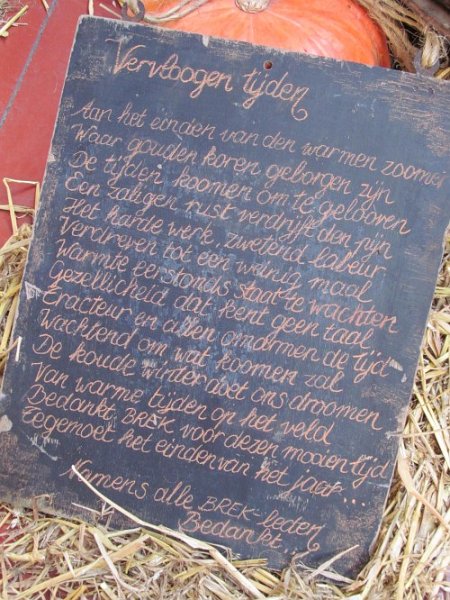 Vervloogen tijden
Aan het einden van den warmen zoomer
Waar gouden koren geborgen zijn
De tijden koomen om te gelooven
Een zaligen rust verdrijft den pijn
Het harde werk, zwetend labeur
Verdreven tot een weinig maal
Warmte eerstonds staat te wachten
Gezellicheid dat kent geen taal
Tracteur en allen omarmen de tijd
Wachtend om wat koomen zal
De koude winter doet ons droomen
Van warme tijden op het veld
Bedankt BREK voor dezen mooien tijd
Tegemoet het einden van het jaar...
Namens alle BREK-leden
Bedankt...